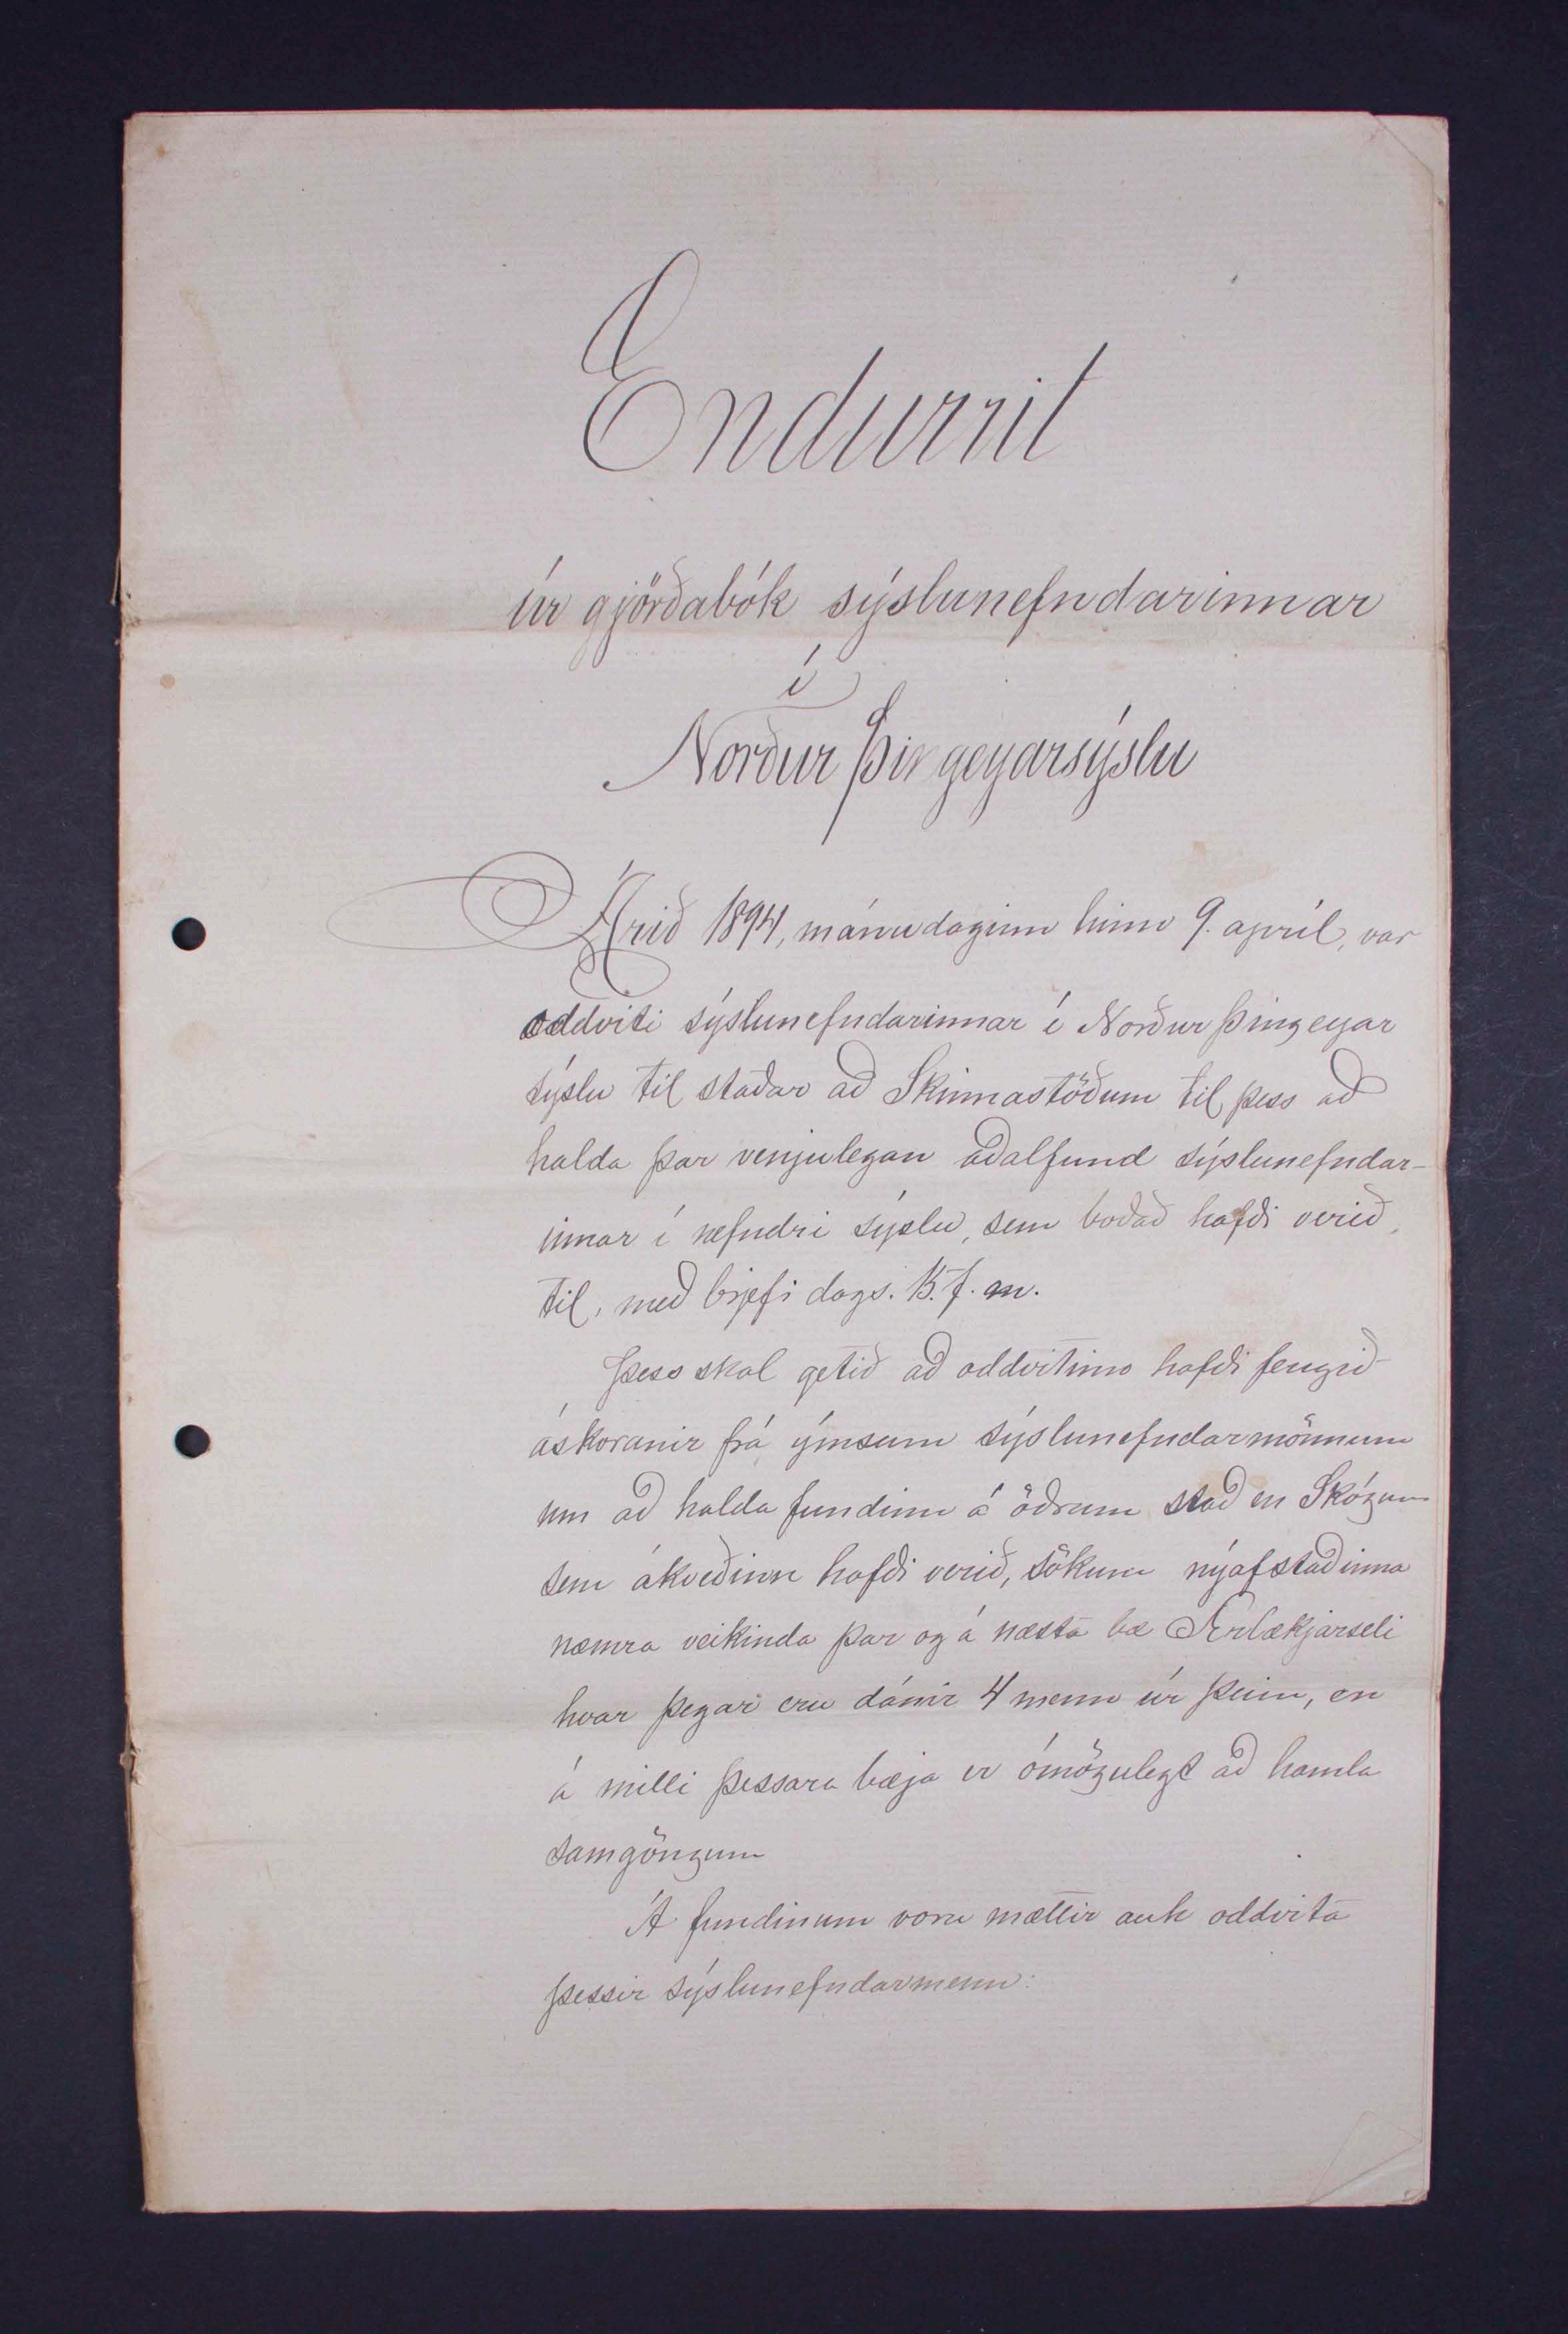 Endurrit
úr gjörðabók sýslunefndarinnar
í
Norður Þingeyarsýslu
Árið 1894, mánudaginn hinn 9. apríl, var
oddviti sýslunefndarinnar í Norður Þingeyar
sýslu til staðar að Skinnastöðum til þess að
halda þar venjulegan aðalfund sýslunefndar-
innar í nefndri sýslu, sem boðað hafði verið,
til, með brjefi dags. 15. f. m.
Þess skal getið að oddvitinn hafði fengið
áskoranir frá ýmsum sýslunefndarmönnum
um að halda fundinn á öðrum stað en Skógum
sem ákveðinn hafði verið, sökum nýafstaðinna
næmra veikinda þar og á næsta bæ Ærlækjarseli
hvar þegar eru dánir 4 menn úr þeim, en
á milli þessara bæja er ómögulegt að hamla
samgöngum
Á fundinum voru mættir auk oddvita
þessir sýslunefndarmenn: